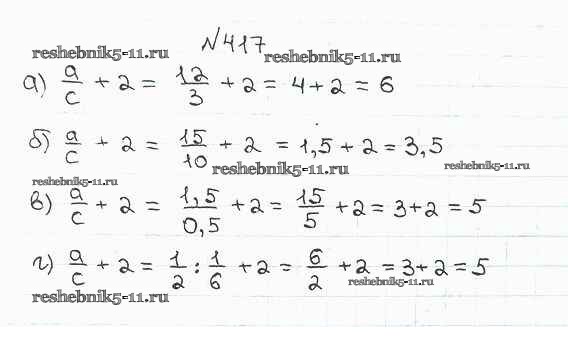 №417
reshebnik5-11.ru
reshebnik5-11.ru
а) a/c + 2 = 12/3 + 2 = 4 + 2 = 6
б) a/c + 2 = 15/10 + 2 = 1,5 + 2 = 3,5
reshebnik5-11.ru
reshebnik5-11.ru
reshebnik5-11.ru
в) a/c + 2 = 1,5/0,5 + 2 = 15/5 + 2 = 3 + 2 = 5
г) a/c + 2 = 1/2 : 1/6 + 2 = 6/2 + 2 = 3 + 2 = 5
reshebnik5-11.ru
reshebnik5-11.ru